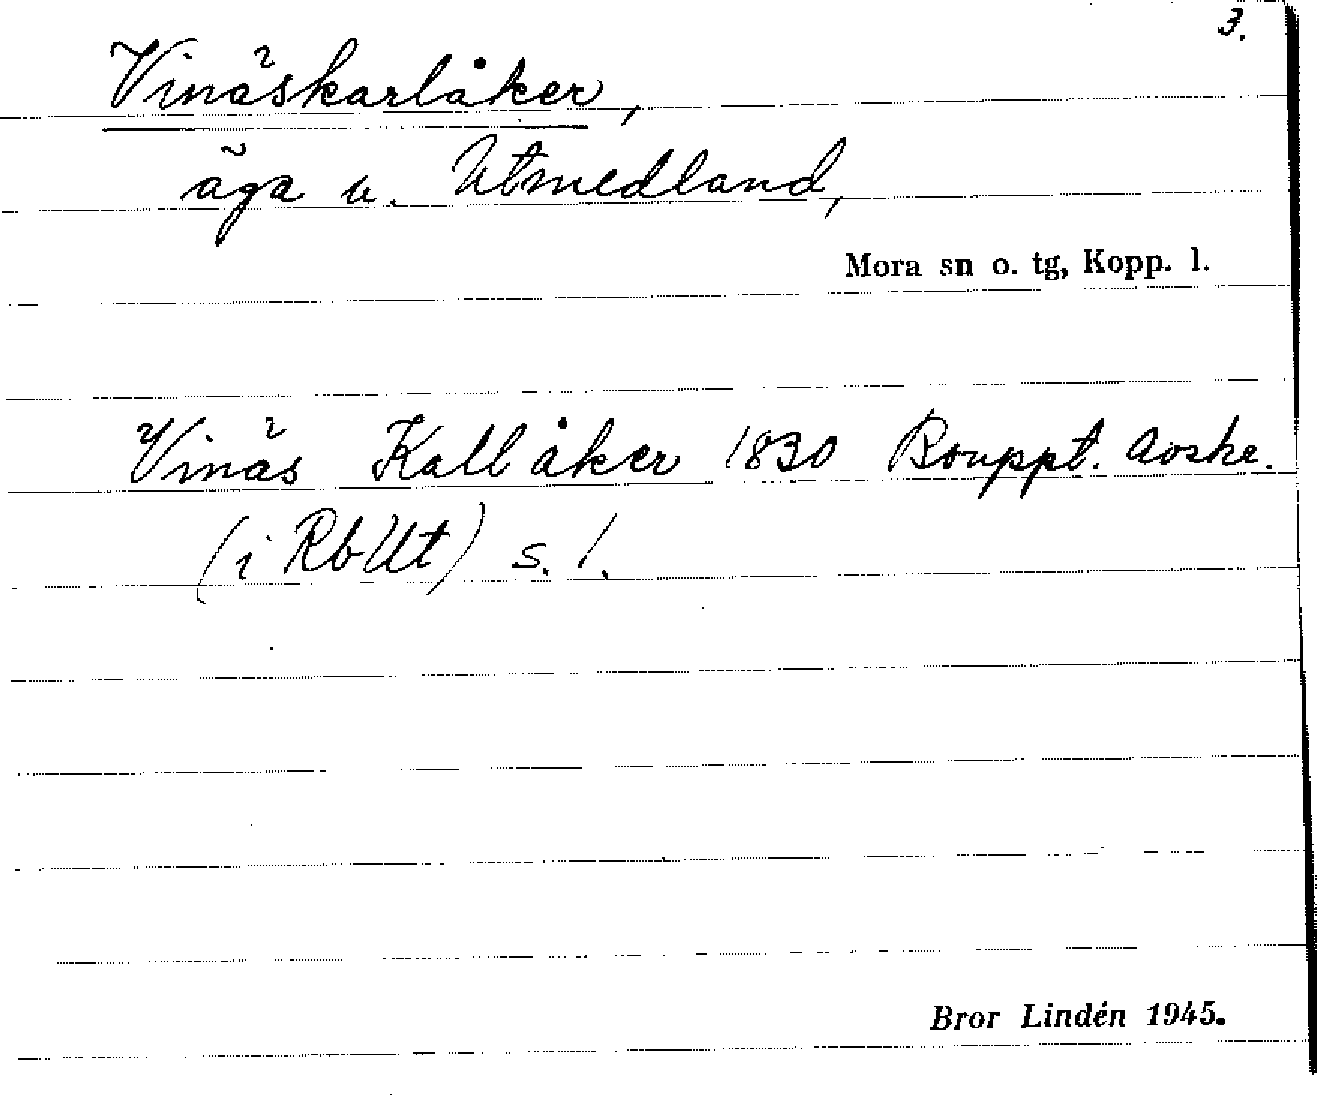 3.
Vinäskarlåker,
äga u. Utmedland,
Mora sn o. tg, Kopp. l.
Vinäs Kallåker 1830 Bouppt.
(i RbUt) s. 1.
Bror Lindén 1945.